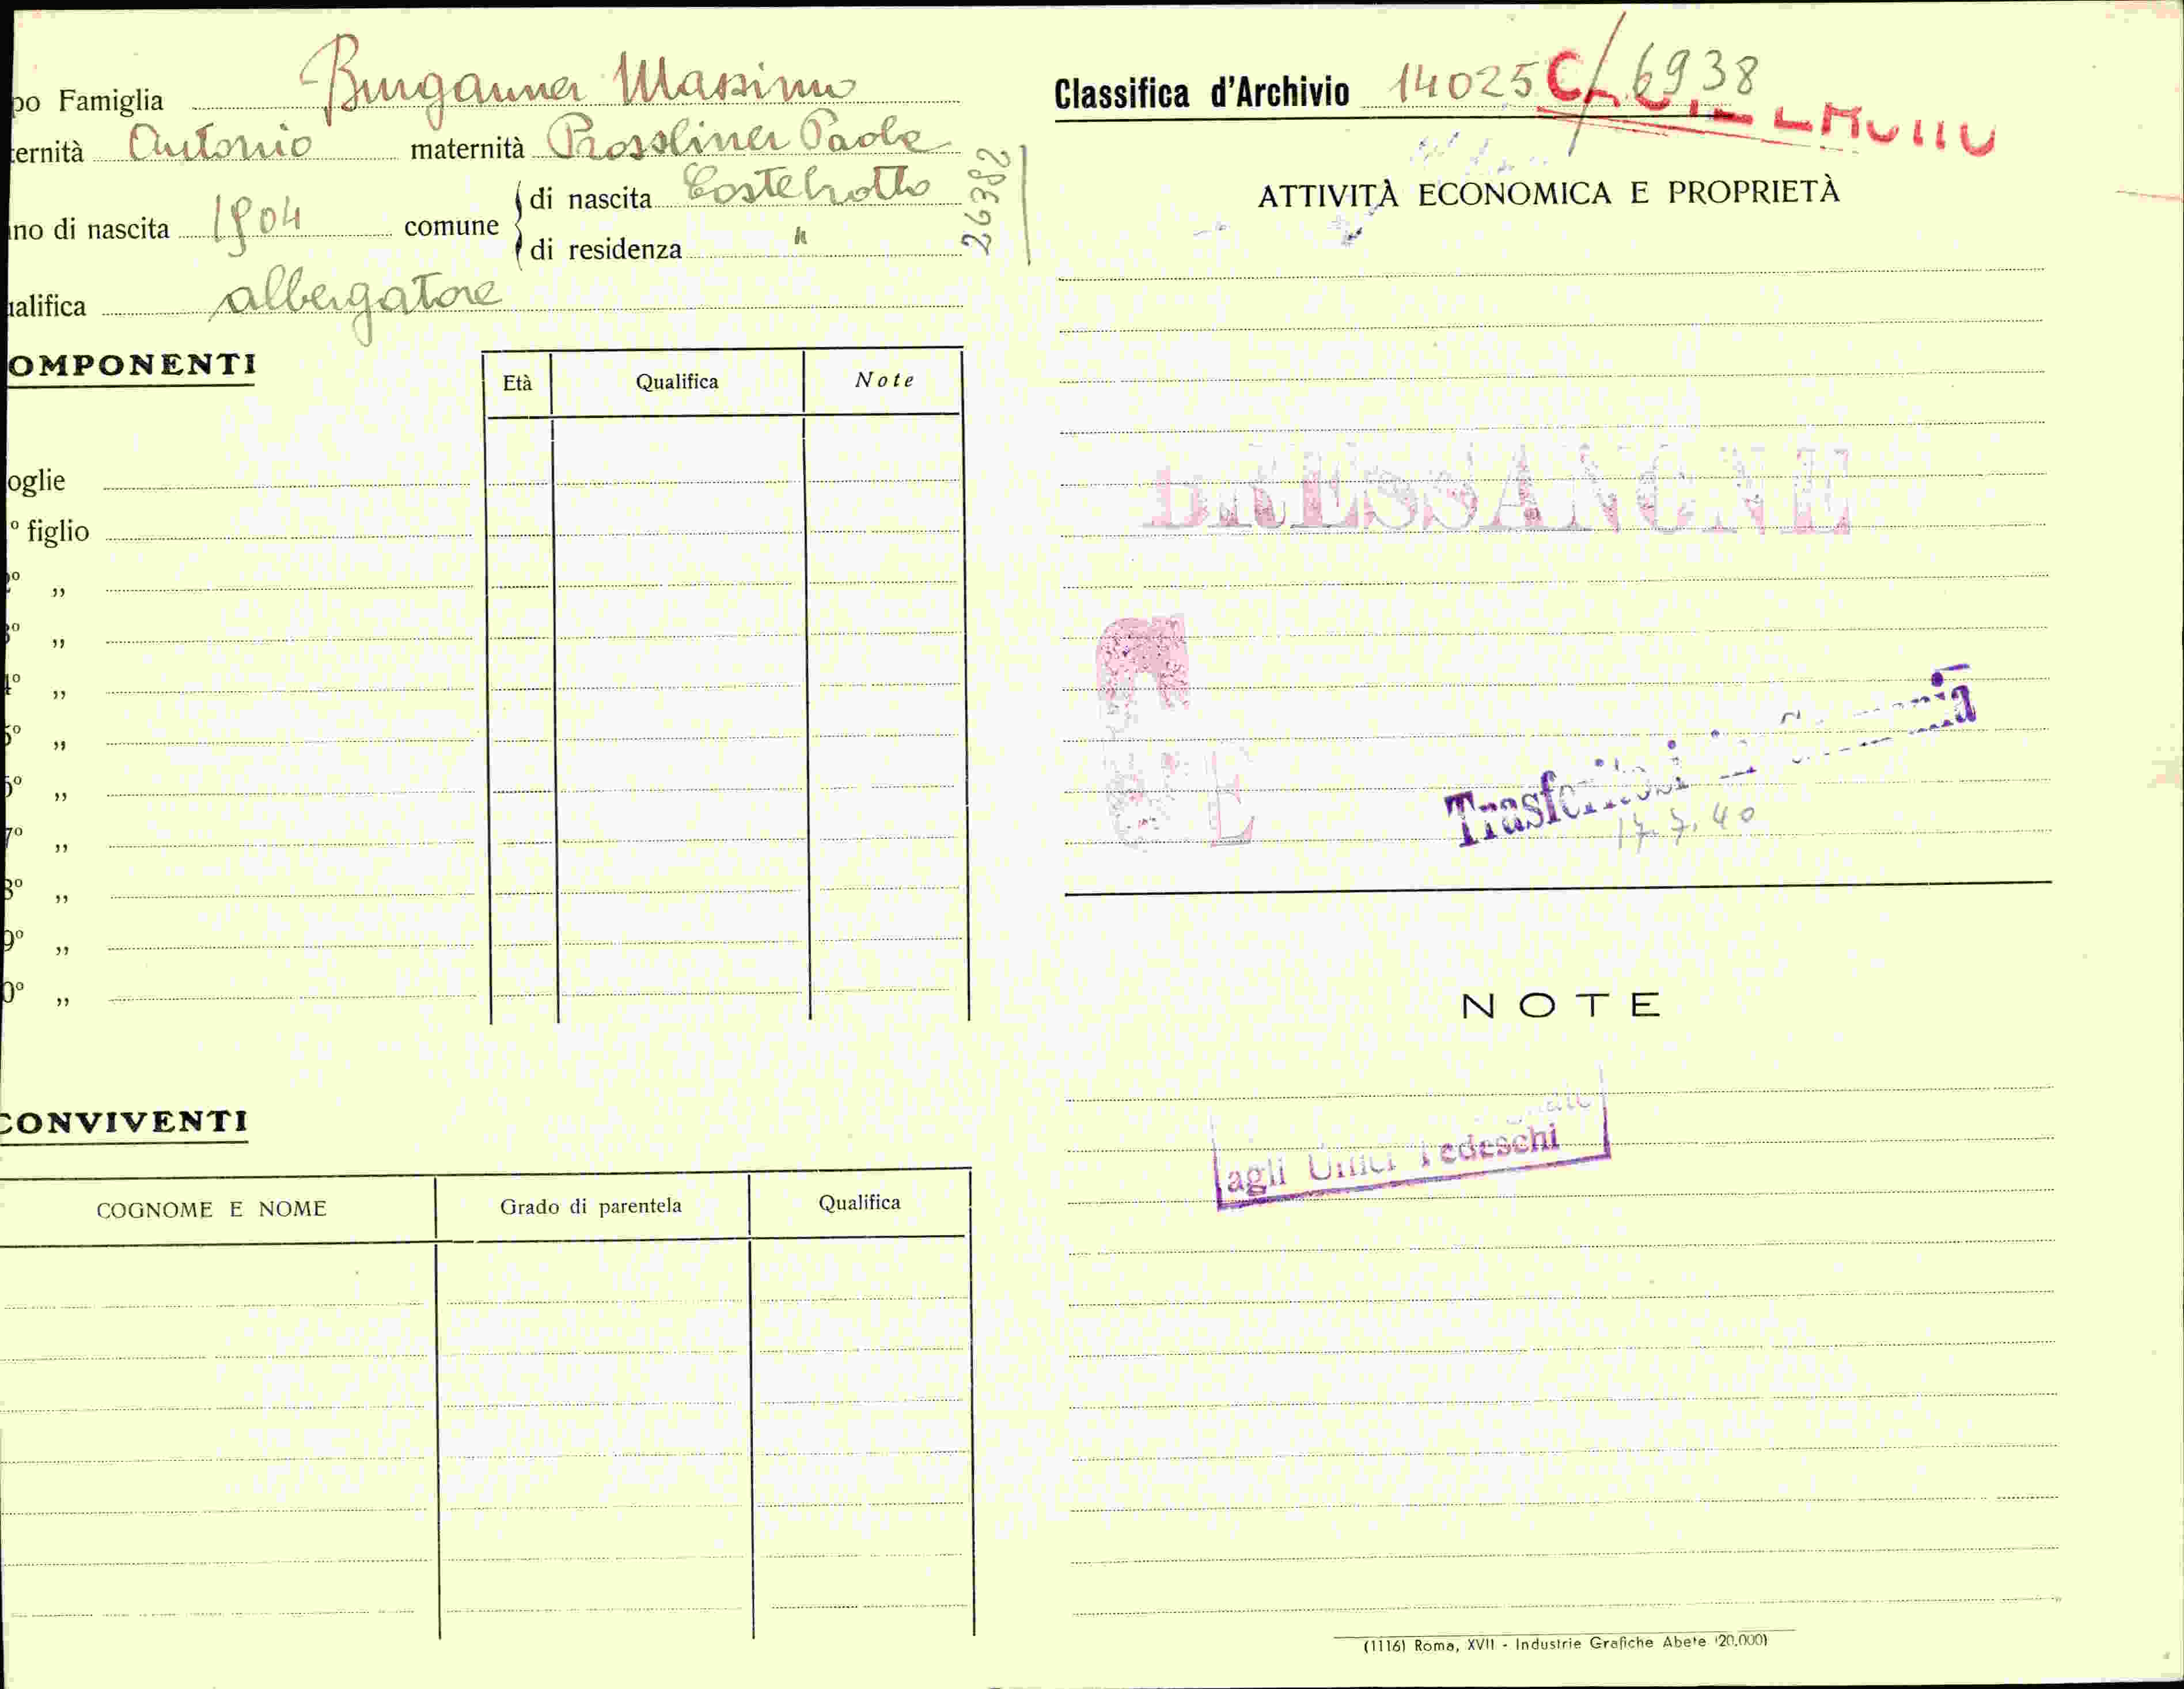 po Famiglia Burgauner Massimo
ternità Antonio maternità Prossliner Paola
no di nascita 1904 comune di nascita Castelrotto
di residenza "
26382
ualifica albergatore
OMPONENTI
Età Qualifica Note
oglie
º figlio
2º "
3º "
4º "
5º "
6º "
7º "
8º "
9º "
0º "
CONVIVENTI
COGNOME E NOME Grado di parentela Qualifica
Classifica d'Archivio 14025 C/6938
ATTIVITÀ ECONOMICA E PROPRIETÀ
BRESSANONE
E
Trasferitosi in Germania
17.7.40
NOTE
agli Uffici Tedeschi
(1116) Roma, XVII - Industrie Grafiche Abete (20.000)